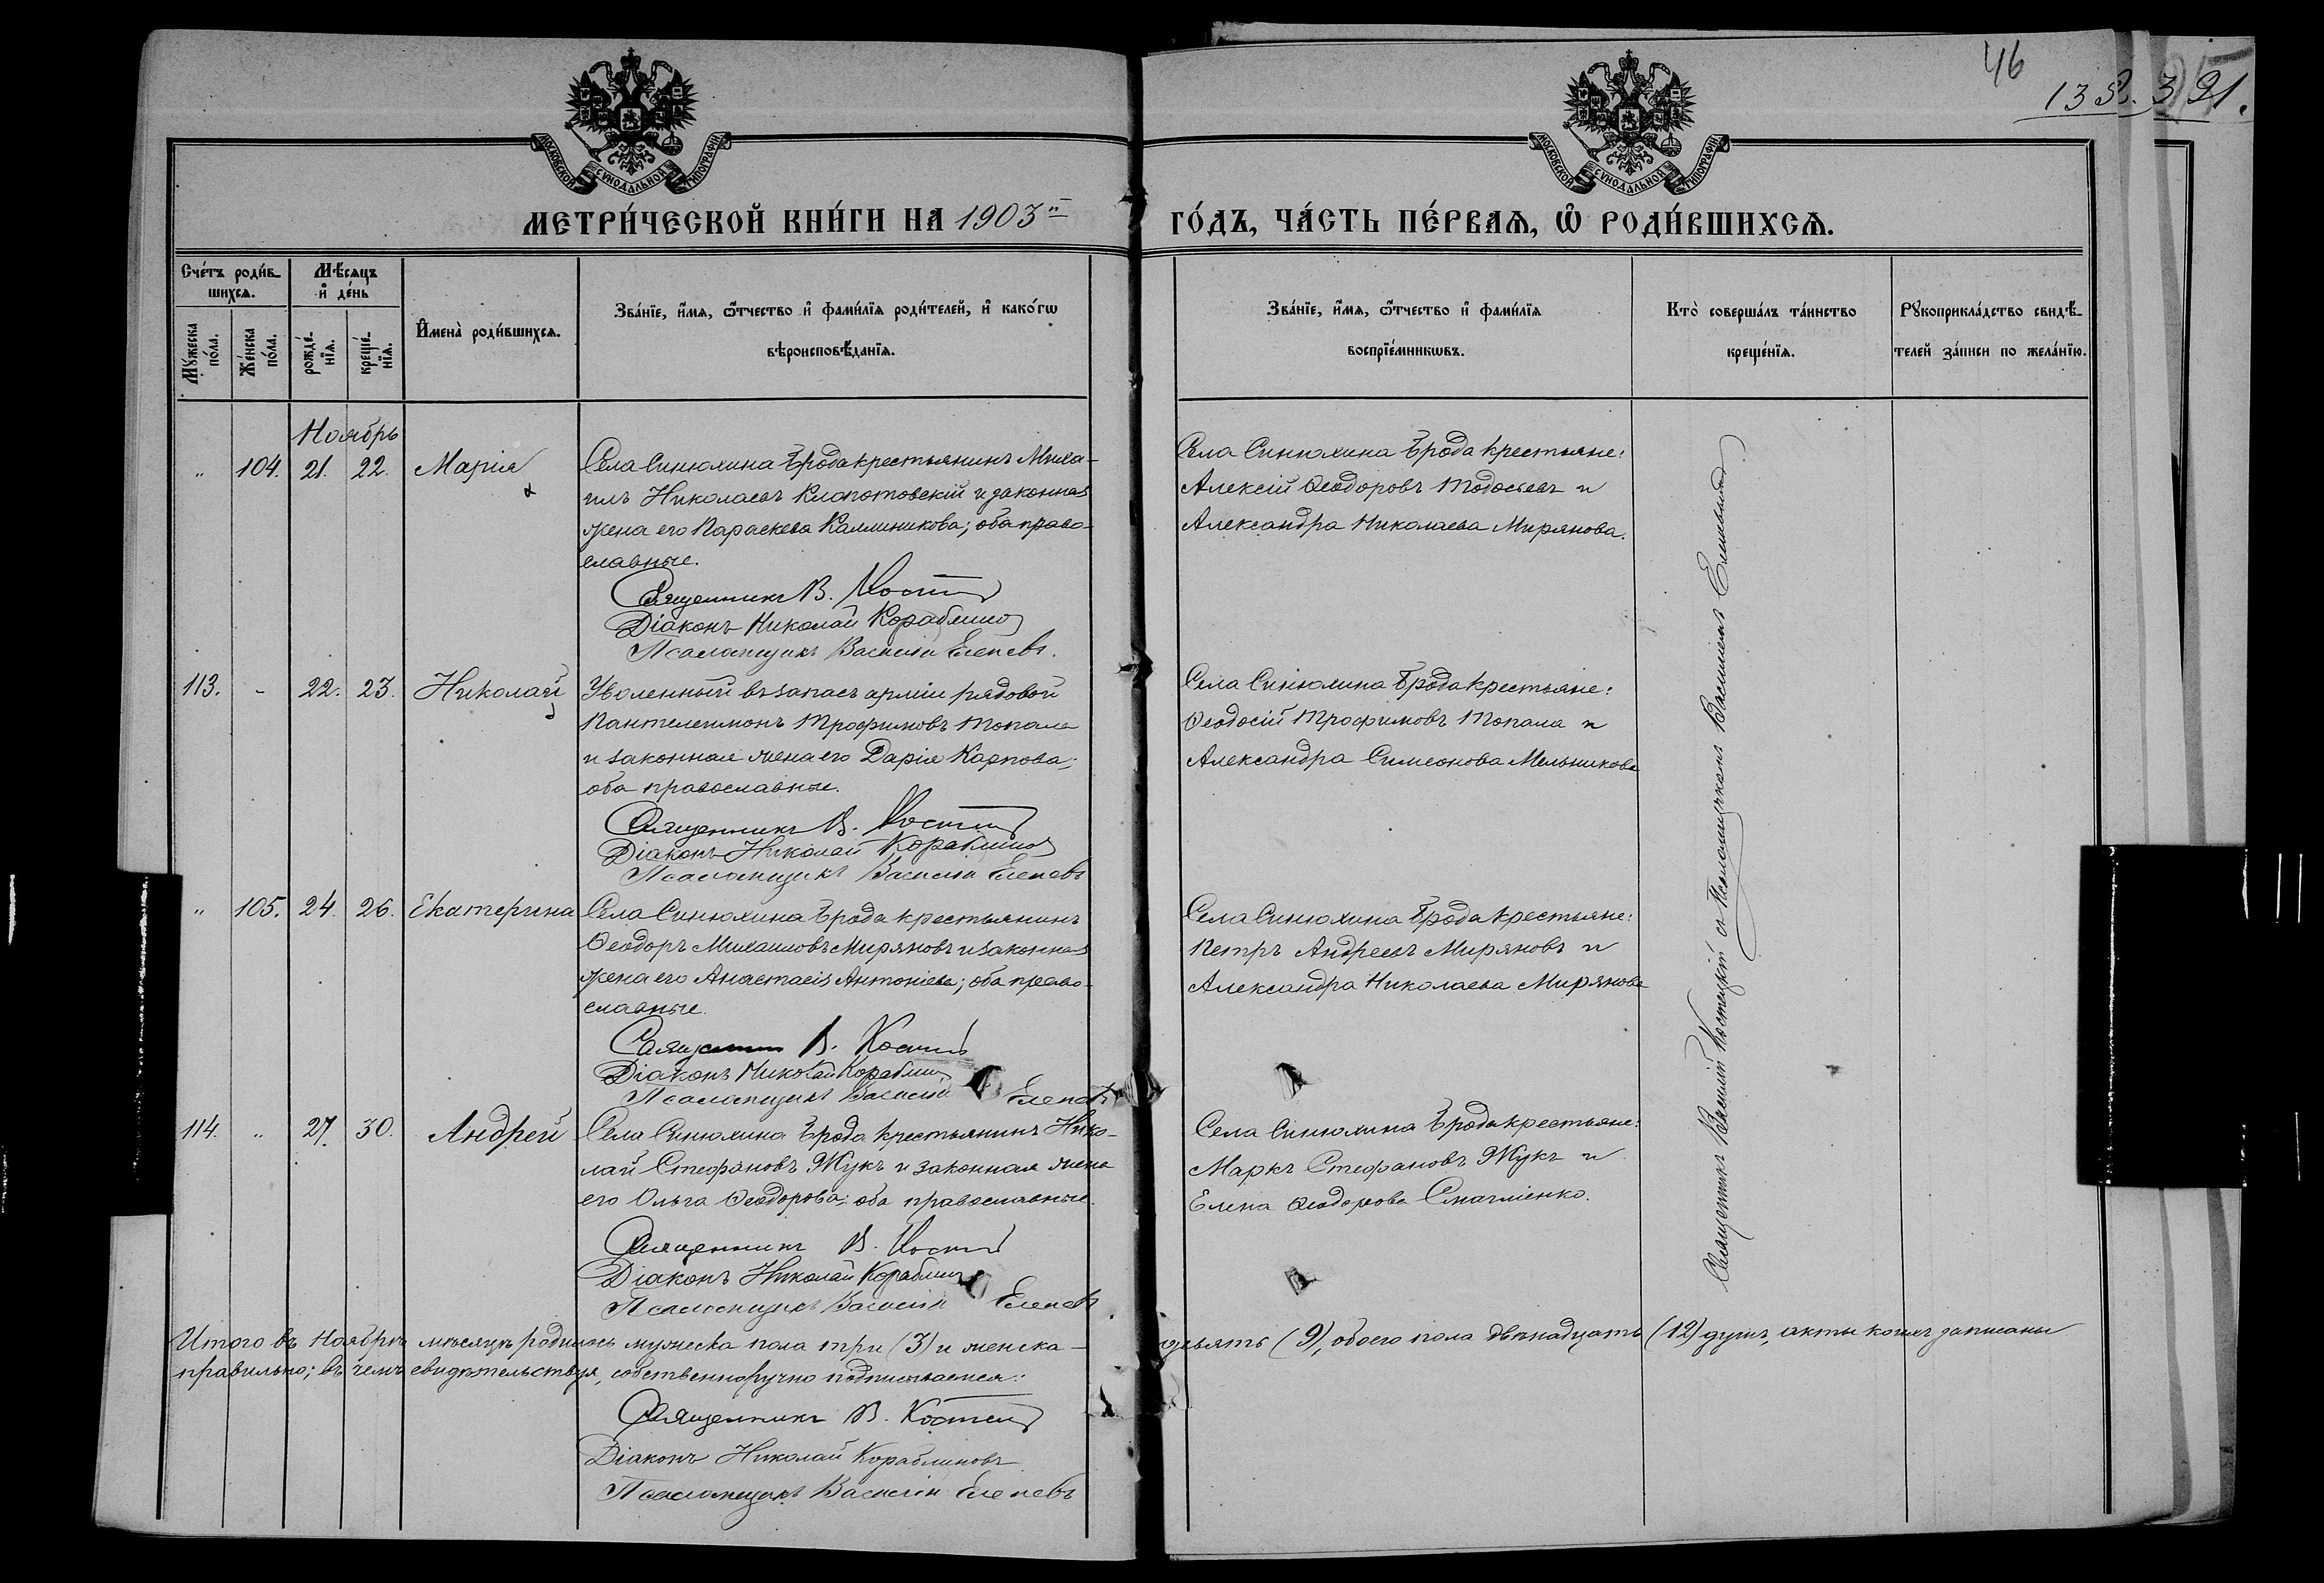 46
132. 321.
МОСКОВСКОЙ СУНОДАЛЬНОЙ ТИПОГРАФІИ
МОСКОВСКОЙ СУНОДАЛЬНОЙ ТИПОГРАФІИ
МЕТРИ́ЧЕСКОЙ КНИ́ГИ НА 1903й
ГО́ДЪ, ЧА́СТЬ ПЕ́РВАѦ, Ѡ РОДИ́ВШИХСѦ.
Сче́тъ роди́в-
шихсѧ.
Мѣ́сѧцъ
и҆ де́нь
Мꙋ́жеска
по́ла.
Же́нска
по́ла.
рожде́-
нїѧ.
креще́-
нїѧ.
И҆мена̀ роди́вшихсѧ.
Зва́нїе, и҆́мѧ, ѻ҆́тчество и҆ фами́лїѧ роди́телей, и҆ како́гѡ
вѣроисповѣ́данїѧ.
Зва́нїе, и҆́мѧ, ѻ҆́тчество и҆ фами́лїѧ
воспрїе́мникѡвъ.
Кто̀ соверша́лъ та́инство
креще́нїѧ.
Рꙋкоприкла́дство свидѣ́-
телей за́писи по жела́нїю.
Ноябрь
" 104. 21. 22. Марія
Села Синюхина Брода крестьянинъ Миха-
илъ Николаевъ Клопотовскій и законная
жена его Параскева Каллиникова; оба право-
славные.
Священникъ В.
Діаконъ Николай Кораблинов
Псаломщикъ Василій Елепевъ.
Села Синюхина Брода крестьяне:
Алексій Ѳеодоровъ Тодосьевъ и
Александра Николаева Мирянова.
113. - 22. 23. Николай
Уволенный въ запасъ арміи рядовой
Пантелеимонъ Трофимовъ Топала
и законная жена его Дарія Карпова;
оба православные.
Священникъ В.
Діаконъ Николай Кораблинов
Псаломщикъ Василій Елепевъ
Села Синюхина Брода крестьяне:
Ѳеодосій Трофимовъ Топала и
Александра Симеонова Мельникова
" 105. 24. 26. Екатерина
Села Синюхина Брода крестьянинъ
Ѳеодоръ Михаиловъ Миряновъ и законная
жена его Анастасія Антоніева; оба право-
славные.
В.
Діаконъ Николай Кораблин
Псаломщикъ Василій Елепевъ
Села Синюхина Брода крестьяне:
Петръ Андреевъ Миряновъ и
Александра Николаева Мирянова
114. " 27. 30. Андрей
Села Синюхина Брода крестьянинъ Нико-
лай Стефановъ Жукъ и законная жена
его Ольга Ѳеодорова; оба православные.
Священникъ В.
Діаконъ Николай Кораблин
Псаломщикъ Василій Елепевъ
Села Синюхина Брода крестьяне:
Маркъ Стефановъ Жукъ и
Елена Ѳеодорова
Священникъ Василій Костецкій съ Псаломщикомъ Василіемъ
Итого въ Ноябрѣ мѣсяцѣ родилось мужеска пола три (3) и женска - девять (9), обоего пола двѣнадцать (12) душъ, акты коихъ записаны
правильно; въ чемъ свидѣтельствуя, собственноручно подписываемся:
Священникъ В.
Діаконъ Николай Кораблиновъ
Псаломщикъ Василій Елепевъ